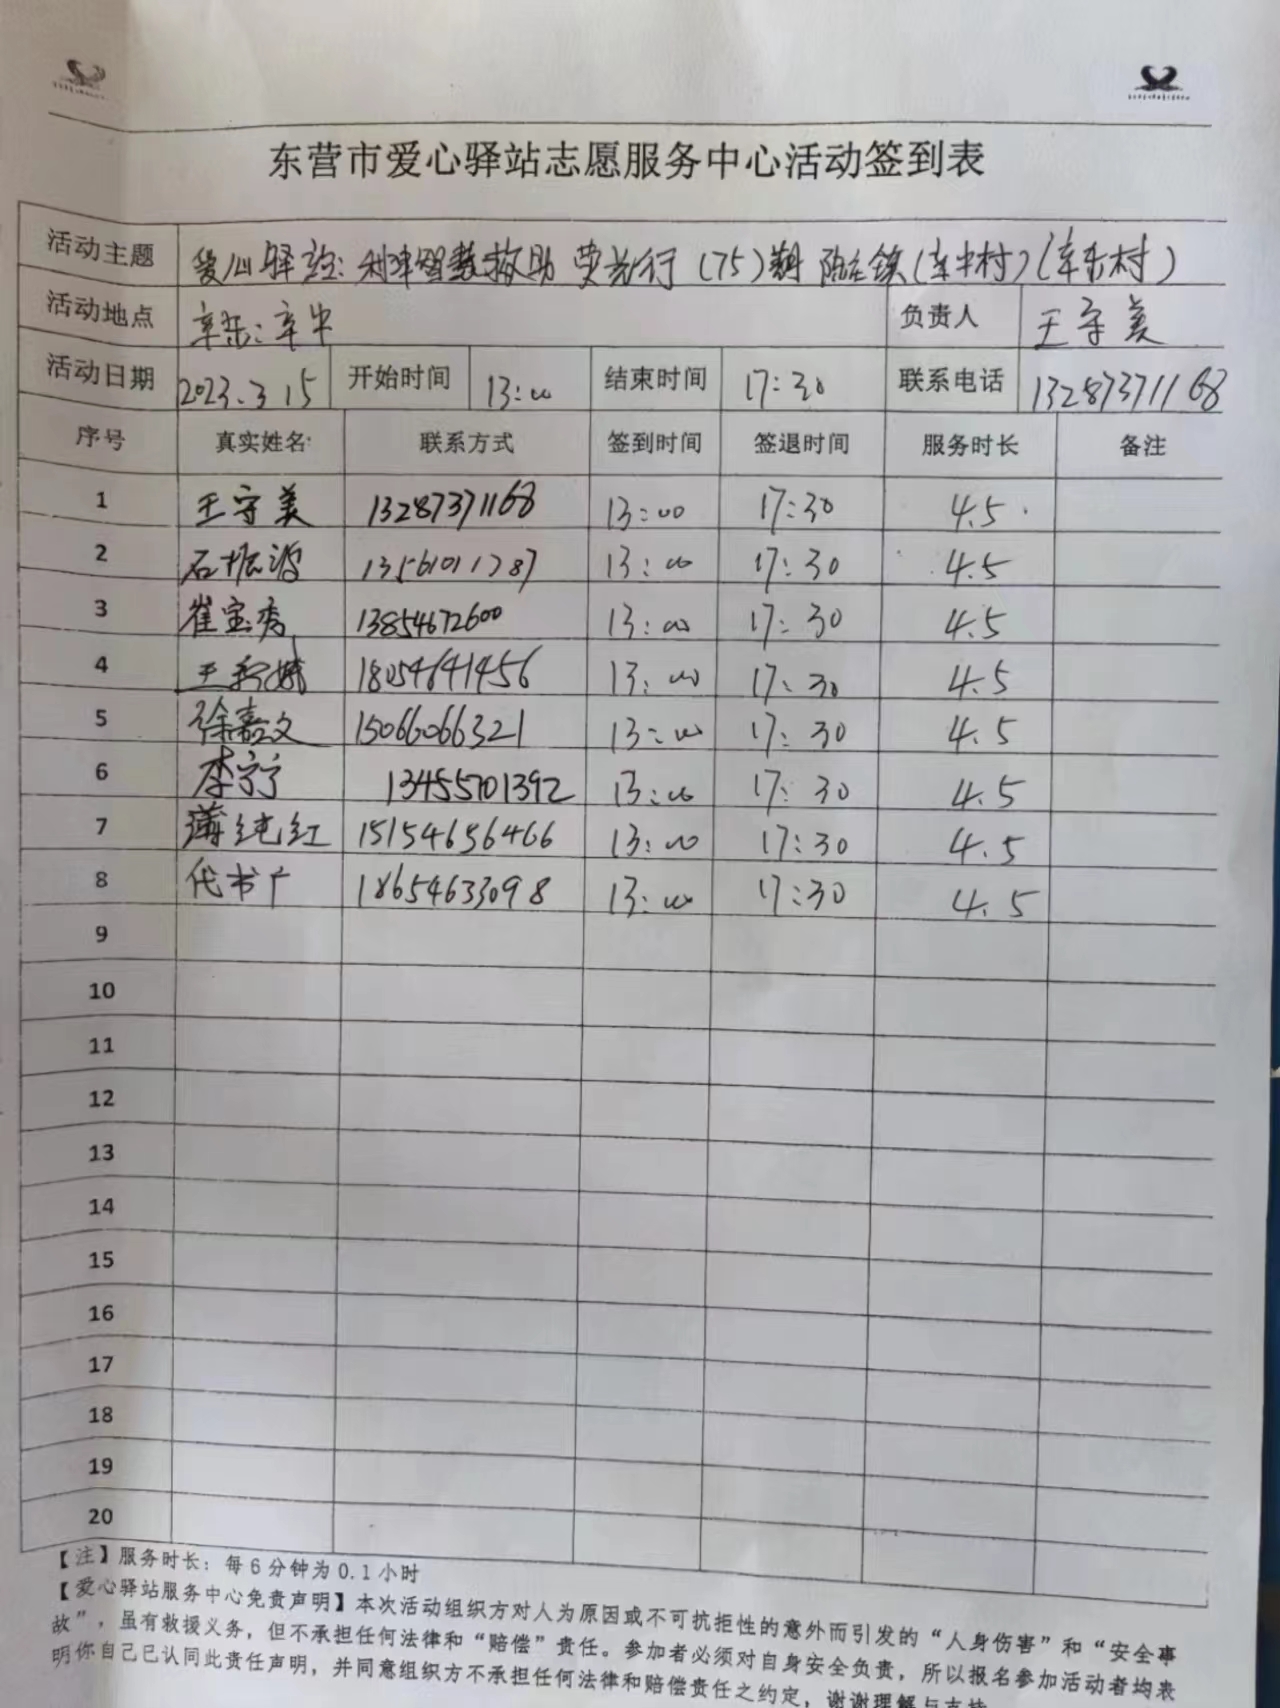 东营市爱心驿站志愿服务中心活动签到表
活动主题 爱心驿站:利津智慧救助 荧光行(75)期 陈庄镇(辛中村)(辛东村)
活动地点 辛东:辛中 负责人 王守美
活动日期 2023.3.15 开始时间 13:00 结束时间 17:30 联系电话 13287371168
序号 真实姓名 联系方式 签到时间 签退时间 服务时长 备注
1 王守美 13287371168 13:00 17:30 4.5
2 石振源 13561011787 13:00 17:30 4.5
3 崔宝秀 13854672600 13:00 17:30 4.5
4 18054641456 13:00 17:30 4.5
5 徐嘉文 15066066321 13:00 17:30 4.5
6 李宁宁 13455701392 13:00 17:30 4.5
7 薄纯红 15154656466 13:00 17:30 4.5
8 代书广 18654633098 13:00 17:30 4.5
9
10
11
12
13
14
15
16
17
18
19
20
【注】服务时长:每6分钟为0.1小时
【爱心驿站服务中心免责声明】本次活动组织方对人为原因或不可抗拒性的意外而引发的“人身伤害”和“安全事
故”,虽有救援义务,但不承担任何法律和“赔偿”责任。参加者必须对自身安全负责,所以报名参加活动者均表
明你自己已认同此责任声明,并同意组织方不承担任何法律和赔偿责任之约定,谢谢理解与支持